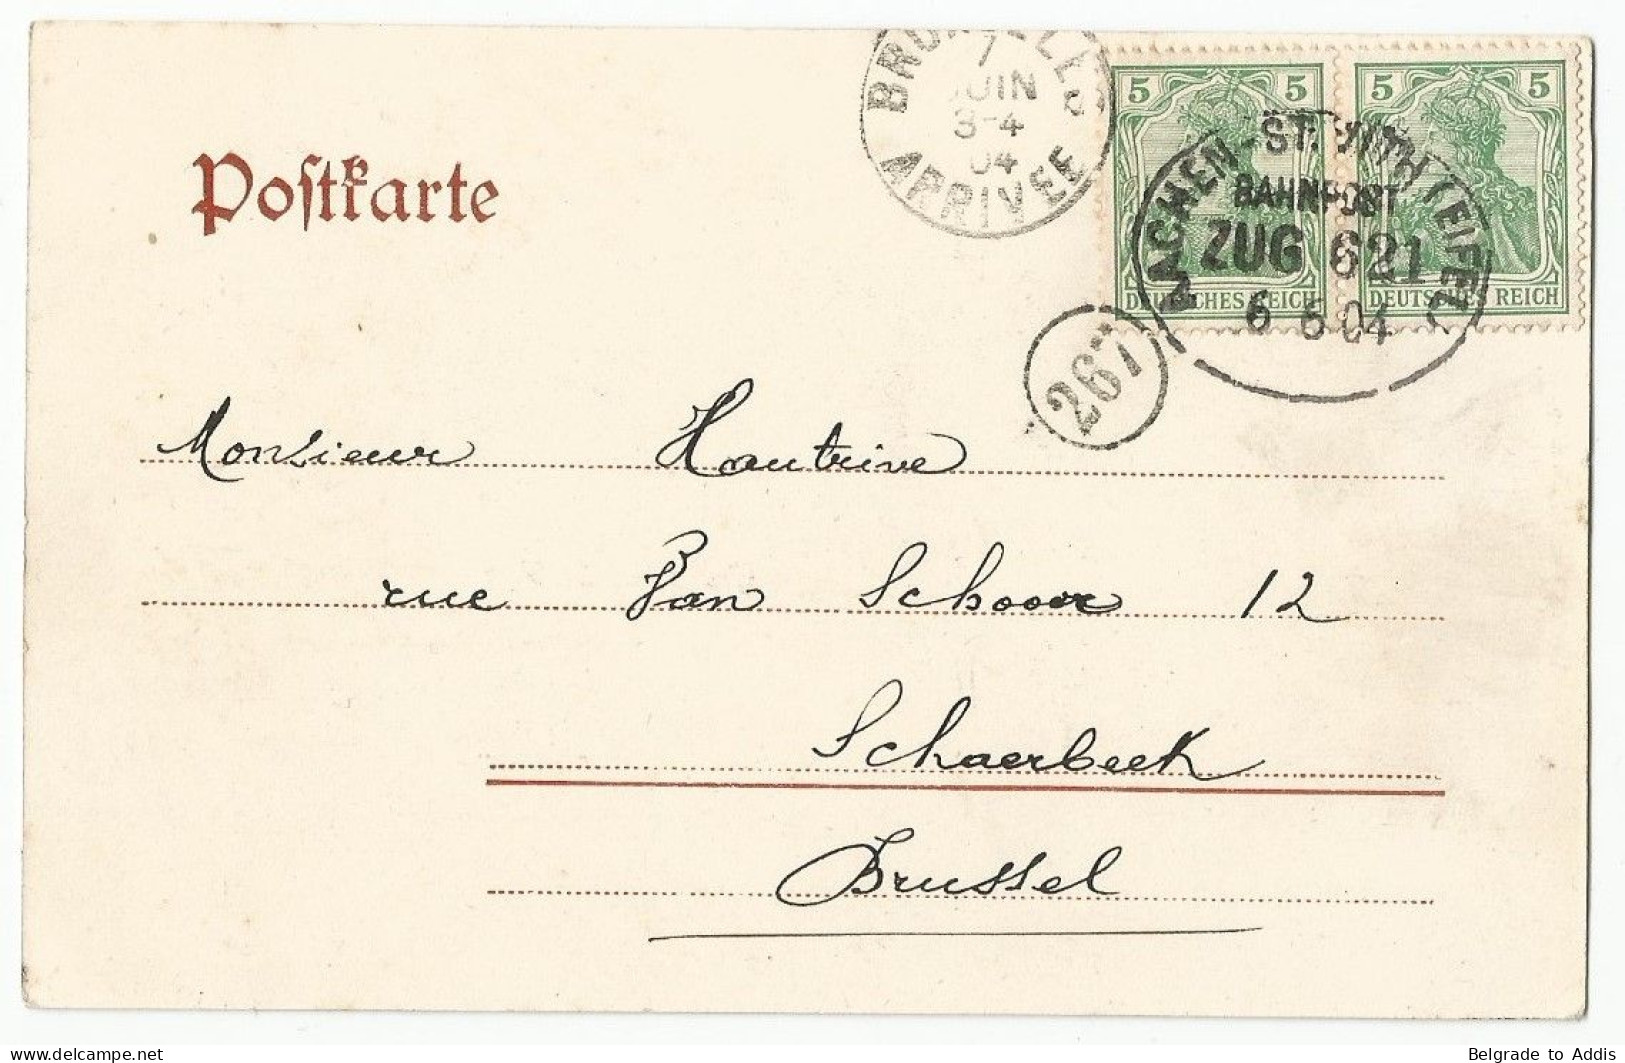 Postkarte
BRUXELLES
7
JUIN
3-4
04
ARRIVEE
5 5
DEUTSCHES REICH
5 5
DEUTSCHES REICH
AACHEN-ST. VITH (EIFEL)
BAHNPOST
ZUG 621
6 6 04
267
Monsieur Hautrive
rue Van Schoor 12
Schaerbeek
Brussel
Belgrade to Addis
delcampe.net